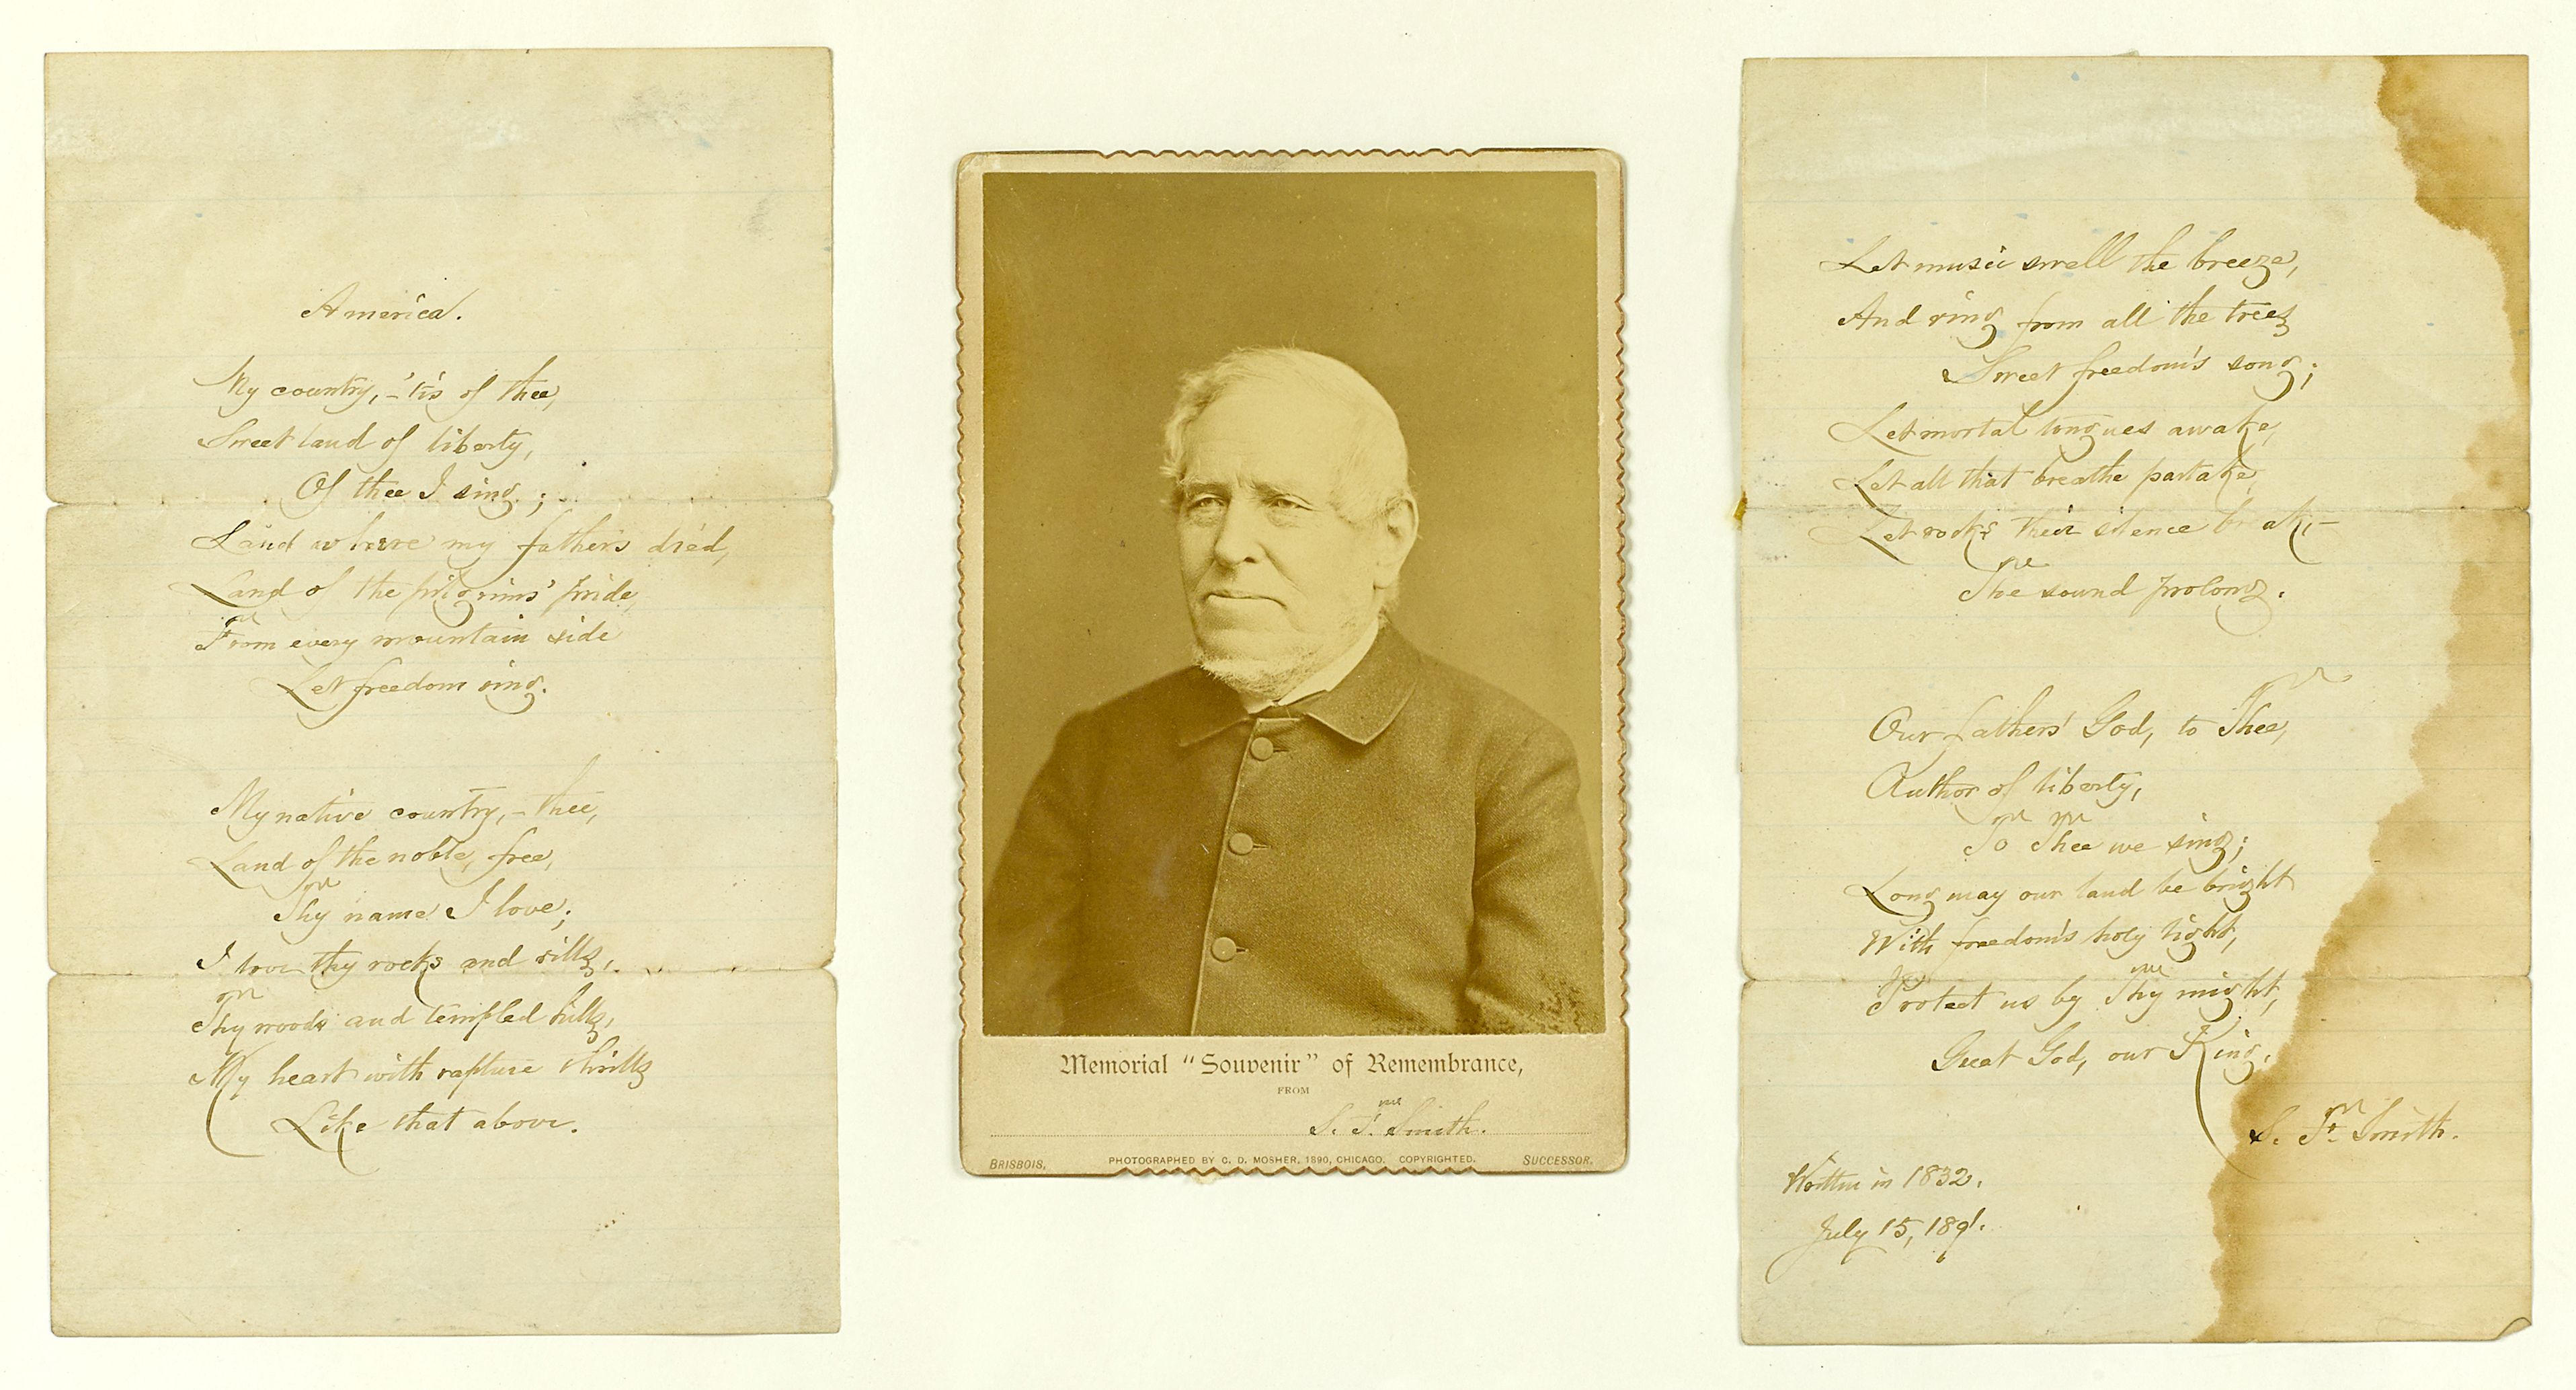 America.
My country, - 'tis of thee,
Sweet land of liberty,
Of thee I sing;
Land where my fathers died,
Land of the pilgrims' pride,
From every mountain side
Let freedom ring.
My native country, - thee,
Land of the noble, free,
Thy name I love;
I love thy rocks and rills,
Thy woods and templed hills,
My heart with rapture thrills
Like that above.
Memorial "Souvenir" of Remembrance,
FROM
S. F. Smith.
BRISBOIS, PHOTOGRAPHED BY C. D. MOSHER, 1890, CHICAGO. COPYRIGHTED. SUCCESSOR.
Let music swell the breeze,
And ring from all the trees
Sweet freedom's song;
Let mortal tongues awake,
Let all that breathe partake,
Let rocks their silence break -
The sound prolong.
Our fathers' God, to Thee,
Author of liberty,
To Thee we sing;
Long may our land be bright
With freedom's holy light,
Protect us by Thy might,
Great God, our King.
S. F. Smith.
Written in 1832.
July 15, 1891.